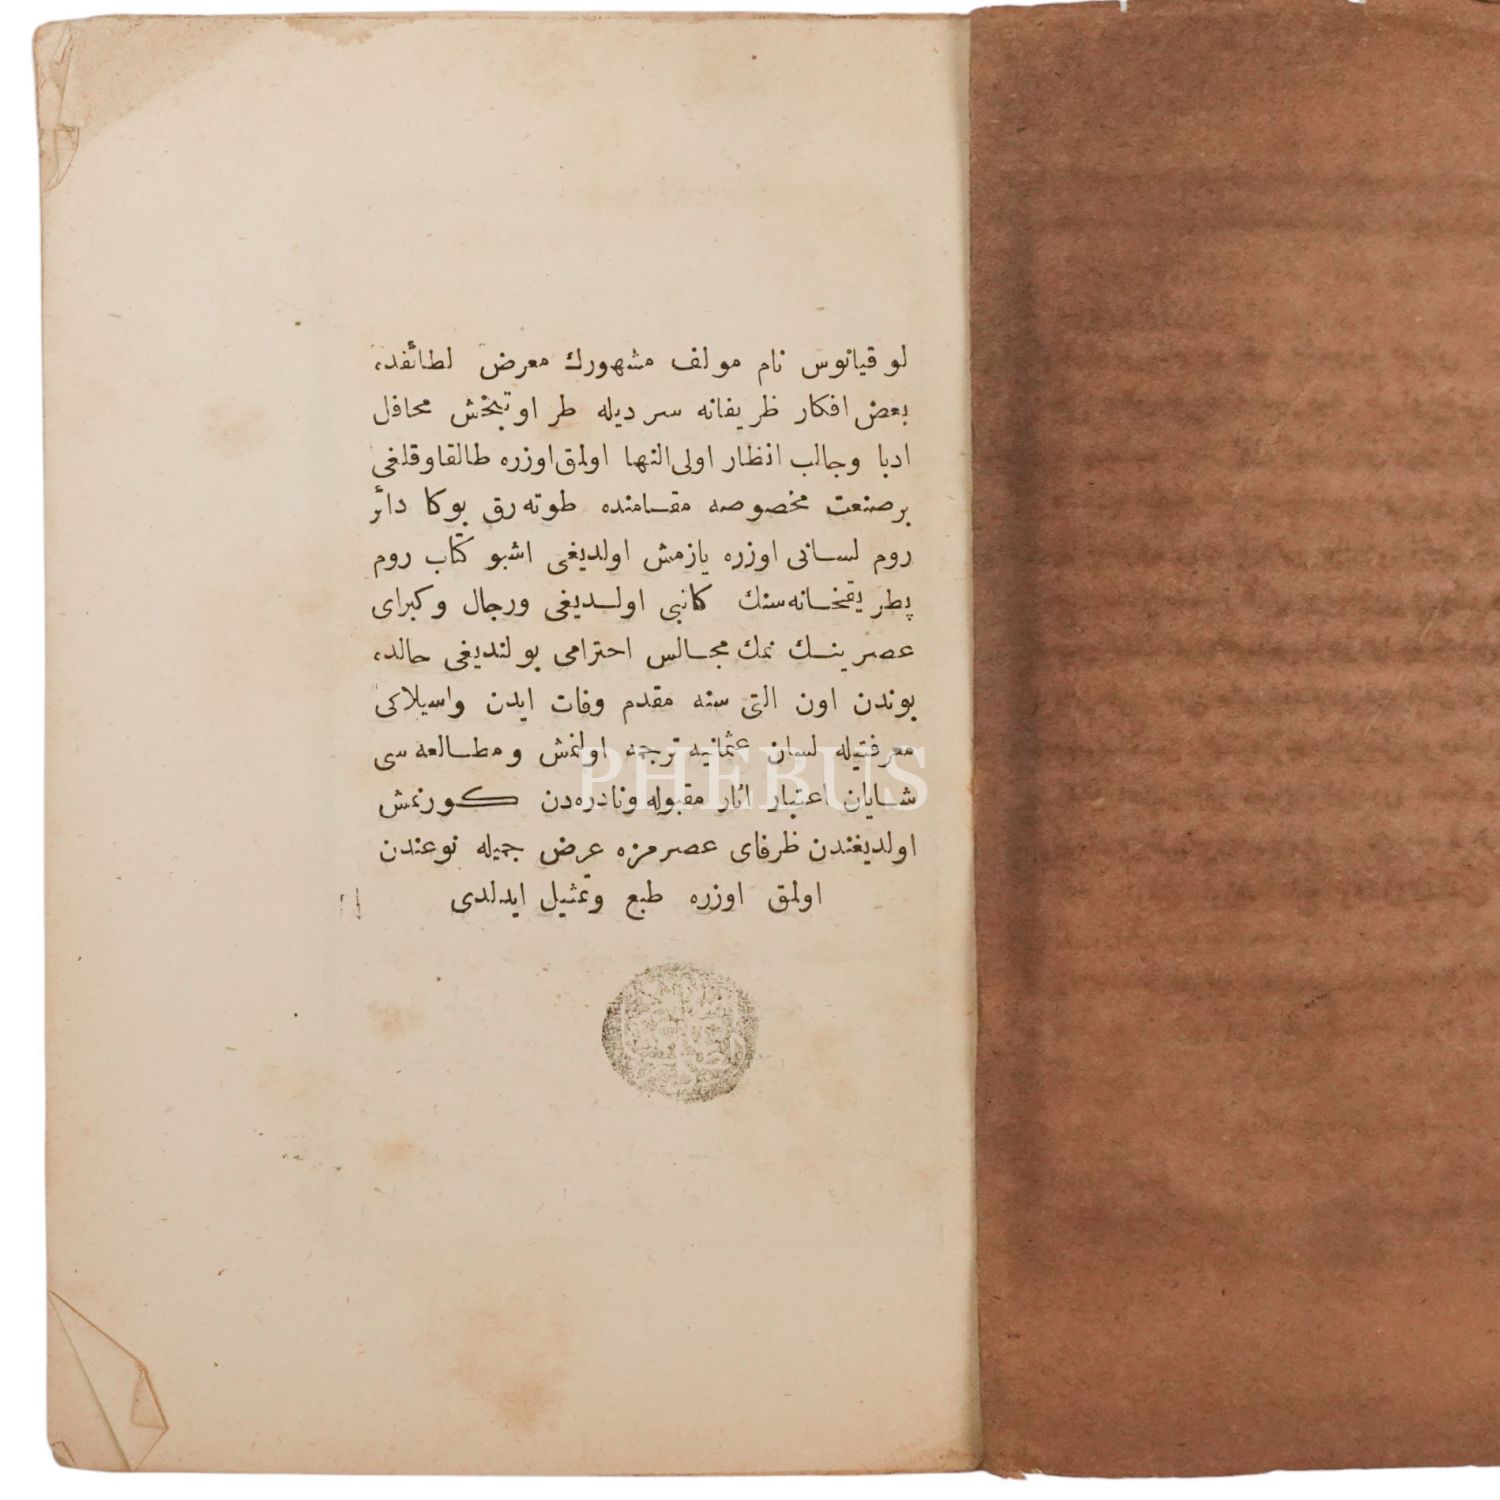 لوقیانوس نام مولف مشهورك معرض لطائفده
بعض افكار ظریفانه سردیله طراوتبخش محافل
ادبا وجالب انظار اولی النها اولمق اوزره طالقاوقلغی
برصنعت مخصوصه مقامنده طوته رق بوكا دائر
روم لسانی اوزره یازمش اولدیغی اشبو كتاب روم
پطریقخانه سنك كاتبی اولدیغی ورجال وكبرای
عصرینك نمك مجالس احترامی بولندیغی حالده
بوندن اون التی سنه مقدم وفات ایدن واسیلاكی
معرفتیله لسان عثمانیه ترجمه اولنمش ومطالعه سی
شایان اعتبار اثار مقبوله ونادره دن كورنمش
اولدیغندن ظرفای عصرمزه عرض جمیله نوعندن
اولمق اوزره طبع وتمثیل ایدلدی
PHEBUS